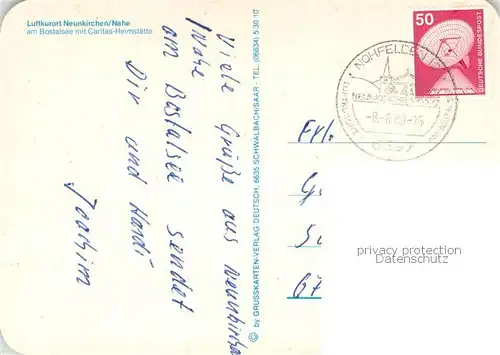 Luftkurort Neunkirchen/Nahe
am Bostalsee mit Caritas-Heimstätte
Viele Grüße aus Neunkirchen
/Nahe
am Bostalsee sendet
Dir und Hardi
Joachim
© by GRUSSKARTEN-VERLAG DEUTSCH, 6635 SCHWALBACH/SAAR - TEL. (06834) 5 30 10
50
DEUTSCHE BUNDESPOST
NOHFELDEN 1
Frl.
privacy protection
Datenschutz